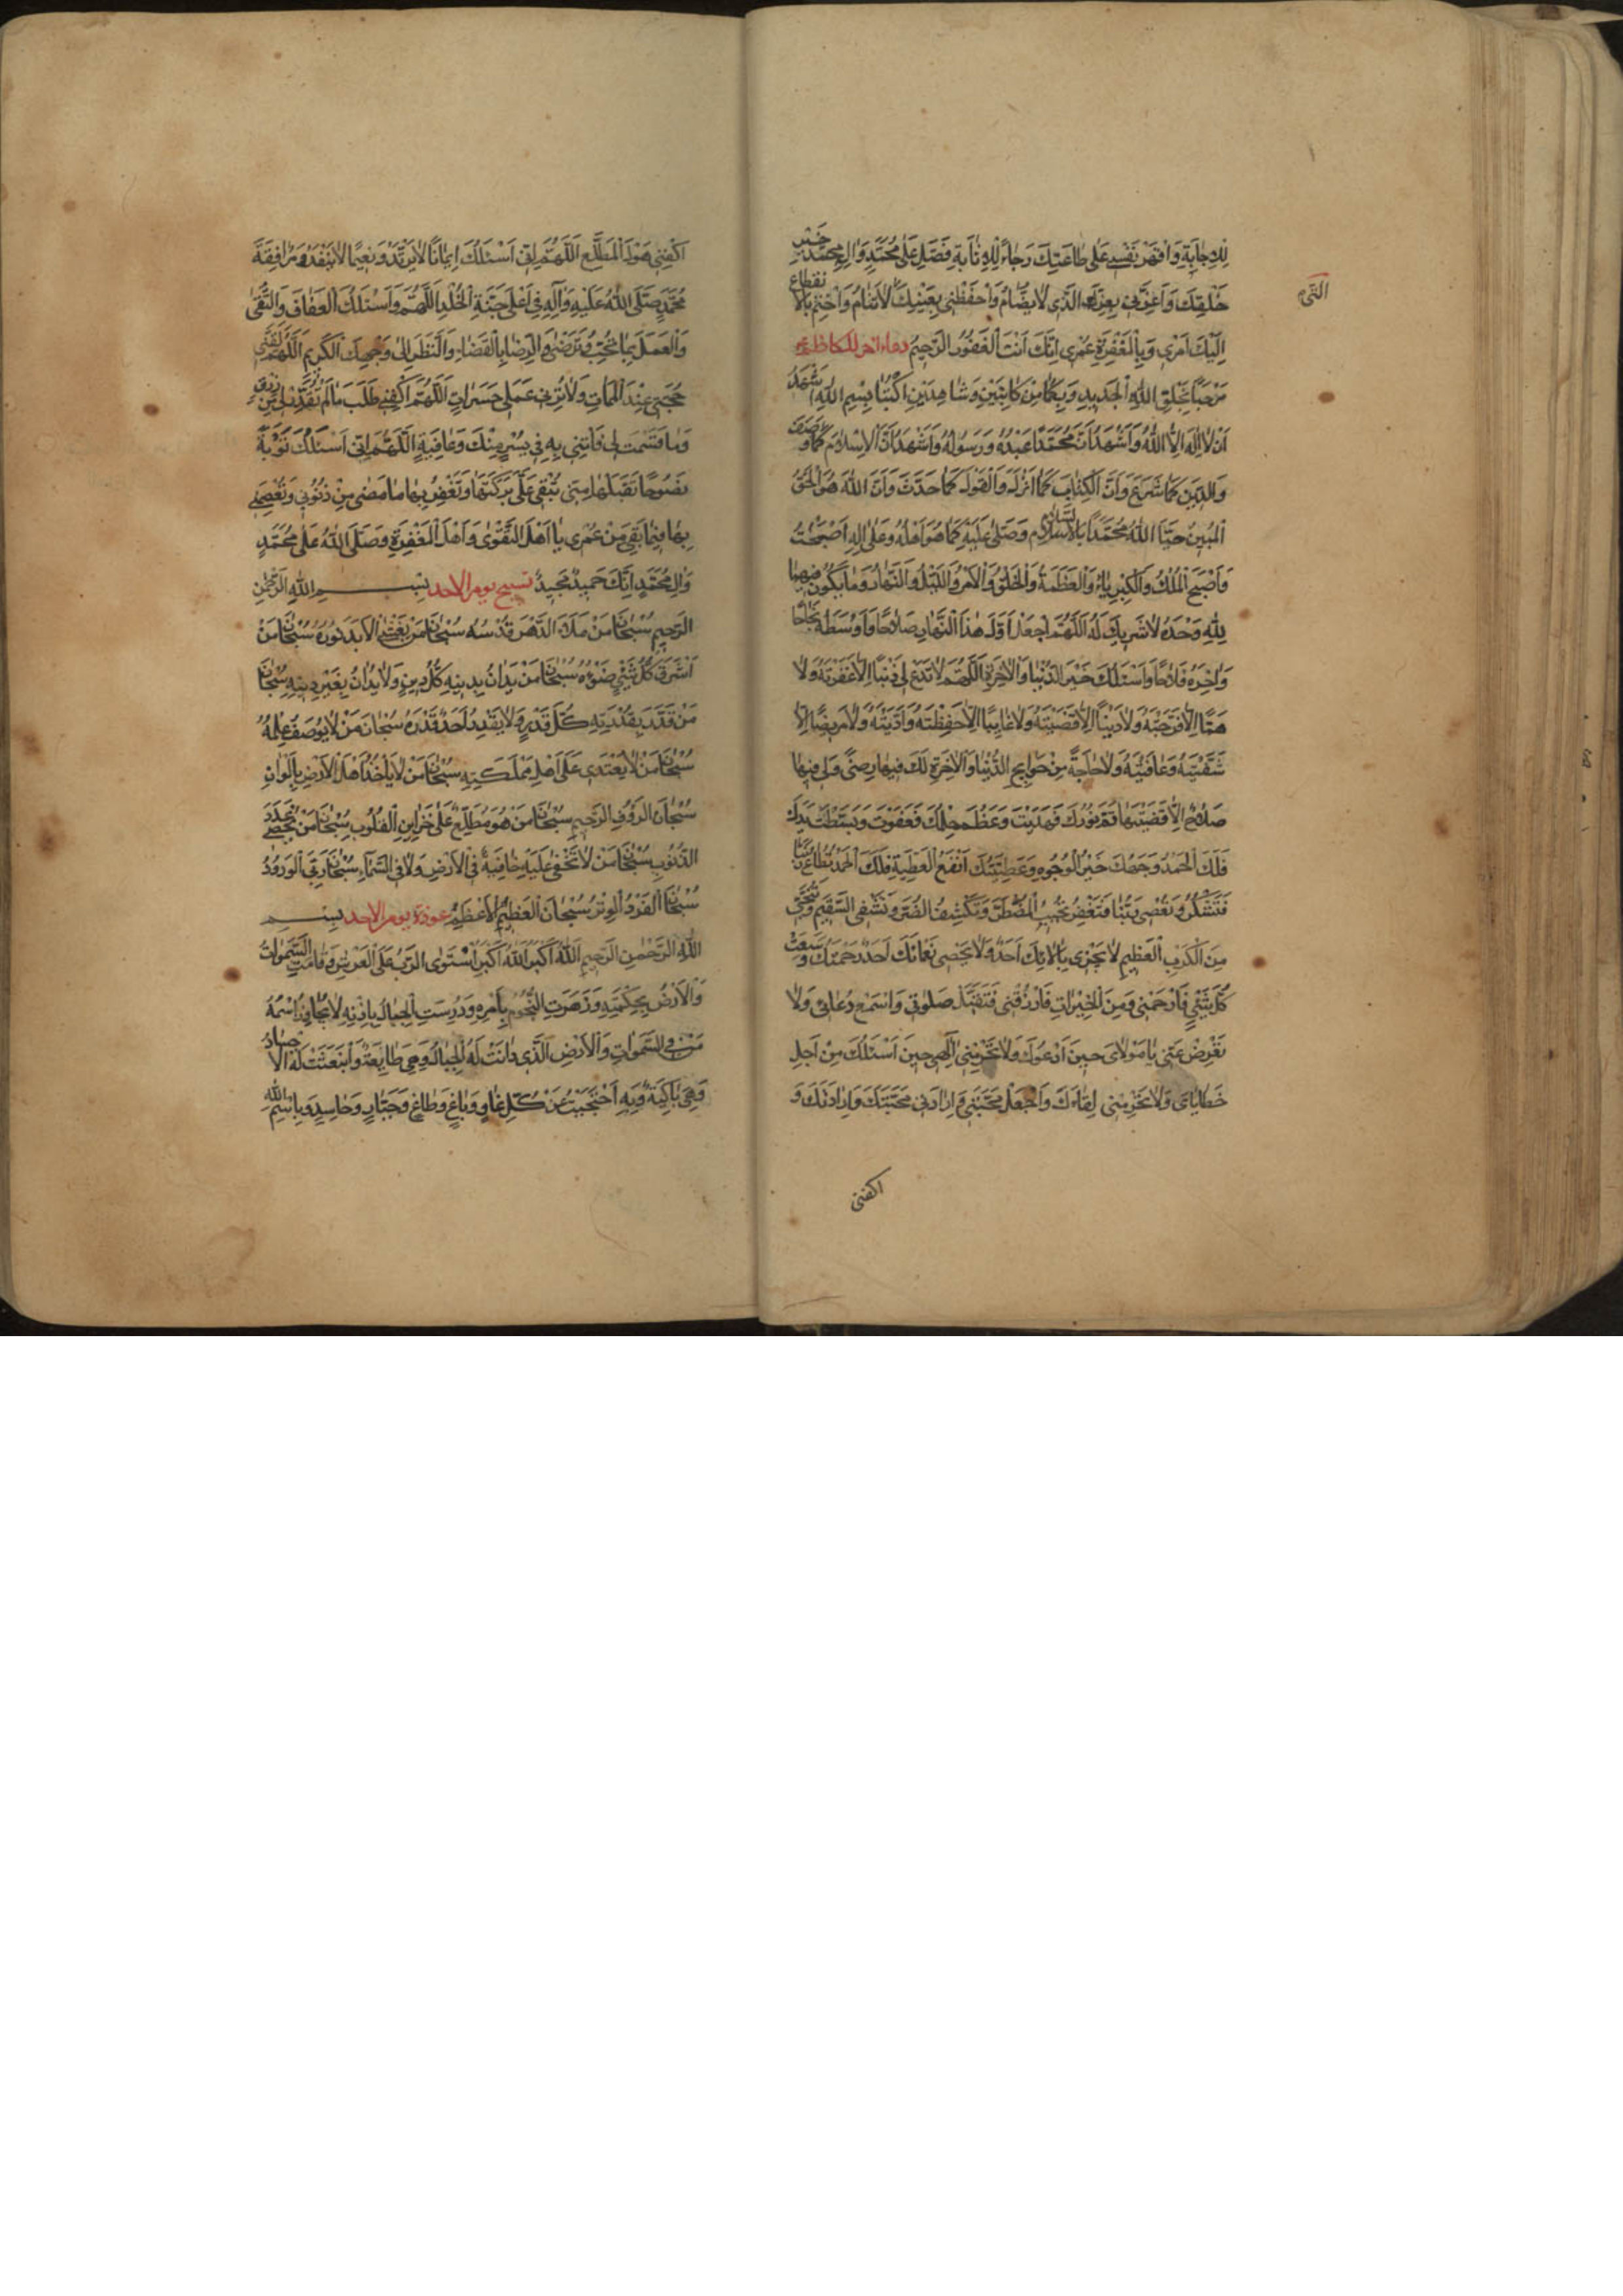 لِلْاِجابَةِ وَاقْهَرْ نَفْسى عَلى طاعَتِكَ رَجاءً لِلْاِنابَةِ فَصَلِّ عَلى مُحَمَّدٍ وَالِ مُحَمَّدٍ خَيْرِ
خَلْقِكَ وَاَعِزَّنى بِعِزِّكَ الَّذى لايُضامُ وَاحْفَظْنى بِعَيْنِكَ الَّتى لاتَنامُ وَاخْتِمْ بِالْاِنْقِطاعِ
اِلَيْكَ اَمْرى وَبِالْمَغْفِرَةِ عُمْرى اِنَّكَ اَنْتَ الْغَفُورُ الرَّحيمُ دعاء اخر للكاظم ع
مَرْحَبًا بِخَلْقِ اللهِ الْجَديدِ وَبِكُما مِنْ كاتِبَيْنِ وَشاهِدَيْنِ اُكْتُبا بِسْمِ اللهِ اَشْهَدُ
اَنْ لااِلهَ اِلَّا اللهُ وَاَشْهَدُ اَنَّ مُحَمَّدًا عَبْدُهُ وَرَسُولُهُ وَاَشْهَدُ اَنَّ الْاِسْلامَ كَما وَصَفَ
وَالدّينَ كَما شَرَعَ وَاَنَّ الْكِتابَ كَما اَنْزَلَ وَالْقَوْلَ كَما حَدَّثَ وَاَنَّ اللهَ هُوَ الْحَقُّ
الْمُبينُ حَيَّا اللهُ مُحَمَّدًا بِالسَّلامِ وَصَلّى عَلَيْهِ كَما هُوَ اَهْلُهُ وَعَلى الِهِ اَصْبَحْتُ
وَاَصْبَحَ الْمُلْكُ وَالْكِبْرِياءُ وَالْعَظَمَةُ وَالْخَلْقُ وَالْاَمْرُ وَاللَّيْلُ وَالنَّهارُ وَما يَكُونُ فيهِما
لِلّهِ وَحْدَهُ لاشَريكَ لَهُ اَللّهُمَّ اجْعَلْ اَوَّلَ هذَا النَّهارِ صَلاحًا وَاَوْسَطَهُ نَجاحًا
وَاخِرَهُ فَلاحًا وَاَسْئَلُكَ خَيْرَ الدُّنْيا وَالْاخِرَةِ اَللّهُمَّ لاتَدَعْ لى ذَنْبًا اِلّا غَفَرْتَهُ وَلا
هَمًّا اِلّا فَرَّجْتَهُ وَلادَيْنًا اِلّا قَضَيْتَهُ وَلاغايِبًا اِلّا حَفِظْتَهُ وَاَدَّيْتَهُ وَلامَريضًا اِلّا
شَفَيْتَهُ وَعافَيْتَهُ وَلاحاجَةً مِنْ حَوايِجِ الدُّنْيا وَالْاخِرَةِ لَكَ فيها رِضىً وَلى فيها
صَلاحٌ اِلّا قَضَيْتَها تَمَّ نُورُكَ فَهَدَيْتَ وَعَظُمَ حِلْمُكَ فَعَفَوْتَ وَبَسَطْتَ يَدَكَ
فَلَكَ الْحَمْدُ وَجْهُكَ خَيْرُ الْوُجُوهِ وَعَطِيَّتُكَ اَنْفَعُ الْعَطِيَّةِ فَلَكَ الْحَمْدُ تُطاعُ رَبَّنا
فَتَشْكُرُ وَتُعْصى رَبَّنا فَتَغْفِرُ تُجيبُ الْمُضْطَرَّ وَتَكْشِفُ الضُّرَّ وَتَشْفِى السَّقيمَ وَتُنَجّى
مِنَ الْكَرْبِ الْعَظيمِ لايَجْزى بِالائِكَ اَحَدٌ وَلايُحْصى نَعْمائَكَ اَحَدٌ رَحْمَتُكَ وَسِعَتْ
كُلَّ شَىْءٍ فَارْحَمْنى وَمِنَ الْخَيْراتِ فَارْزُقْنى فَتَقَبَّلْ صَلوتى وَاسْمَعْ دُعائى وَلا
تُعْرِضْ عَنّى يا مَوْلاىَ حينَ اَدْعُوكَ وَلاتَحْرِمْنى اِلهى حينَ اَسْئَلُكَ مِنْ اَجْلِ
خَطاياىَ وَلاتَحْرِمْنى لِقاءَكَ وَاجْعَلْ مَحَبَّتى وَاِرادَتى مَحَبَّتَكَ وَاِرادَتَكَ وَ
اكفنى
اكْفِنى هَوْلَ الْمُطَّلَعِ اَللّهُمَّ اِنّى اَسْئَلُكَ ايمانًا لايَرْتَدُّ وَنَعيمًا لايَنْفَدُ وَمُرافَقَةَ
مُحَمَّدٍ صَلَّى اللهُ عَلَيْهِ وَآلِهِ فى اَعْلى جَنَّةِ الْخُلْدِ اَللّهُمَّ وَاَسْئَلُكَ الْعَفافَ وَالتُّقى
وَالْعَمَلَ بِما تُحِبُّ وَتَرْضى وَالرِّضا بِالْقَضاءِ وَالنَّظَرَ اِلى وَجْهِكَ الْكَريمِ اَللّهُمَّ لَقِّنى
حُجَّتى عِنْدَ الْمَماتِ وَلاتُرِنى عَمَلى حَسَراتٍ اَللّهُمَّ اكْفِنى طَلَبَ ما لَمْ تُقَدِّرْ لى مِنْ رِزْقٍ
وَما قَسَمْتَ لى فَاْتِنى بِهِ فى يُسْرٍ مِنْكَ وَعافِيَةٍ اَللّهُمَّ اِنّى اَسْئَلُكَ تَوْبَةً
نَصُوحًا تَقْبَلُها مِنّى تُبْقى عَلَىَّ بَرَكَتَها وَتَغْفِرُ بِها ما مَضى مِنْ ذُنُوبى وَتَعْصِمُنى
بِها فيما بَقِىَ مِنْ عُمْرى يا اَهْلَ التَّقْوى وَاَهْلَ الْمَغْفِرَةِ وَصَلَّى اللهُ عَلى مُحَمَّدٍ
وَالِ مُحَمَّدٍ اِنَّكَ حَميدٌ مَجيدٌ تسبيح يوم الاحد بِسْمِ اللهِ الرَّحْمنِ
الرَّحيمِ سُبْحانَ مَنْ مَلَاَ الدَّهْرَ قُدْسُهُ سُبْحانَ مَنْ يَغْشَى الْاَبَدَ نُورُهُ سُبْحانَ مَنْ
اَشْرَقَ كُلَّ شَىْءٍ ضَوْءُهُ سُبْحانَ مَنْ يُدانُ بِدينِهِ كُلُّ دينٍ وَلايُدانُ بِغَيْرِ دينِهِ سُبْحانَ
مَنْ قَدَّرَ بِقُدْرَتِهِ كُلَّ قَدَرٍ وَلايَقْدِرُ اَحَدٌ قَدْرَهُ سُبْحانَ مَنْ لايُوصَفُ عِلْمُهُ
سُبْحانَ مَنْ لايَعْتَدى عَلى اَهْلِ مَمْلَكَتِهِ سُبْحانَ مَنْ لايَاْخُذُ اَهْلَ الْاَرْضِ بِاَلْوانِ
سُبْحانَ الرَّؤُفِ الرَّحيمِ سُبْحانَ مَنْ هُوَ مُطَّلِعٌ عَلى خَزاينِ الْقُلُوبِ سُبْحانَ مَنْ يُحْصى عَدَدَ
الذُّنُوبِ سُبْحانَ مَنْ لاتَخْفى عَلَيْهِ خافِيَةٌ فِى الْاَرْضِ وَلافِى السَّماءِ سُبْحانَ رَبّى الْوَدُودُ
سُبْحانَ الْفَرْدِ الْوِتْرِ سُبْحانَ الْعَظيمِ الْاَعْظَمِ عوذة يوم الاحد بِسْمِ
اللهِ الرَّحْمنِ الرَّحيمِ اَللهُ اَكْبَرُ اَللهُ اَكْبَرُ اسْتَوَى الرَّبُّ عَلَى الْعَرْشِ وَقامَتِ السَّمواتُ
وَالْاَرْضُ بِحِكْمَتِهِ وَزَهَرَتِ النُّجُومُ بِاَمْرِهِ وَرَسَتِ الْجِبالُ بِاِذْنِهِ لايُجاوِزُ اسْمُهُ
مَنْ فِى السَّمواتِ وَالْاَرْضِ الَّذى دانَتْ لَهُ الْجِبالُ وَهِىَ طايِعَةٌ وَانْبَعَثَتْ لَهُ الْاَجْسادُ
وَهِىَ بالِيَةٌ وَبِهِ اَحْتَجِبُ عَنْ كُلِّ غاوٍ وَباغٍ وَطاغٍ وَجَبّارٍ وَحاسِدٍ وَبِاسْمِ اللهِ